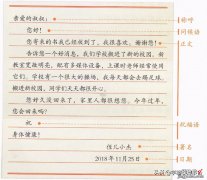 亲爱的叔叔:
称呼
您好!
问候语
您寄来的书我已经收到了,我很喜欢,谢谢您!
正文
告诉您一个好消息,我们学校搬进了新的校园,新
教室宽敞明亮,配有多媒体设备,上课时老师经常使用
它们。学校有一个很大的操场,我每天都会去踢足球。
搬进新校园,同学们天天都很开心。
您好久没回来了,家里人都很想您。今年过年,
您会回来吗?
祝
祝福语
身体健康!
侄儿小杰
署名
2018年11月25日
日期